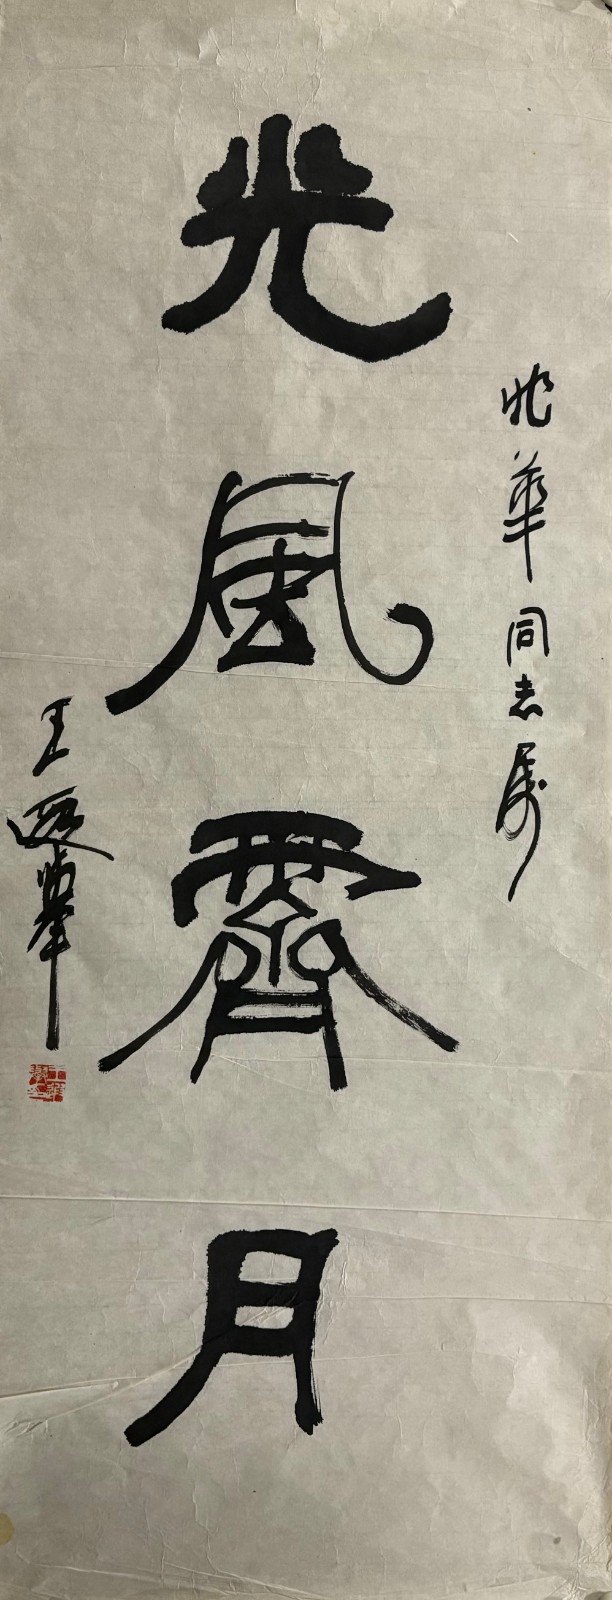 兆華同志属
光風霽月
王遐舉